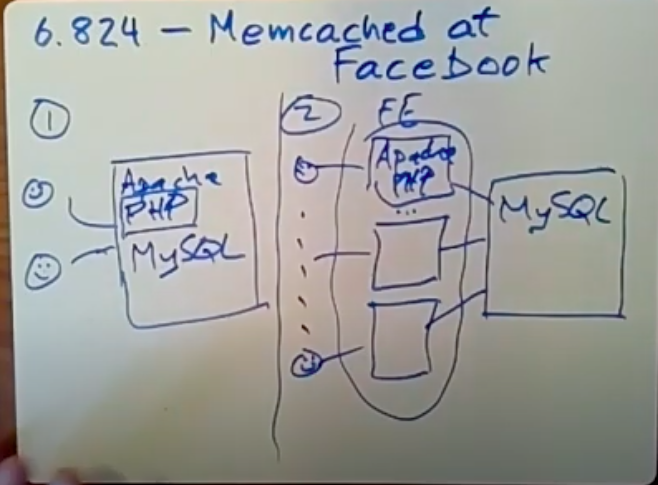 6.824 - Memcached at
Facebook
1
Apache
PHP
MySQL
2
FE
Apache
PHP
...
MySQL